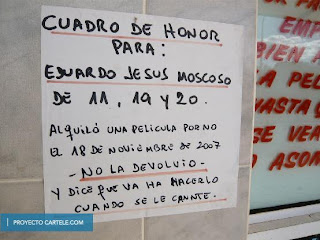 CUADRO DE HONOR
PARA:
EDUARDO JESUS MOSCOSO
DE 11, 19 Y 20.
ALQUILÓ UNA PELICULA PORNO
EL 18 DE NOVIEMBRE DE 2007
- NO LA DEVOLVIO -
Y DICE QUE VA HA HACERLO
CUANDO SE LE CANNTE.
EMP
BIEN A
LA PEL
HASTA Q
SE VER
ASOM
PROYECTO CARTELE.COM